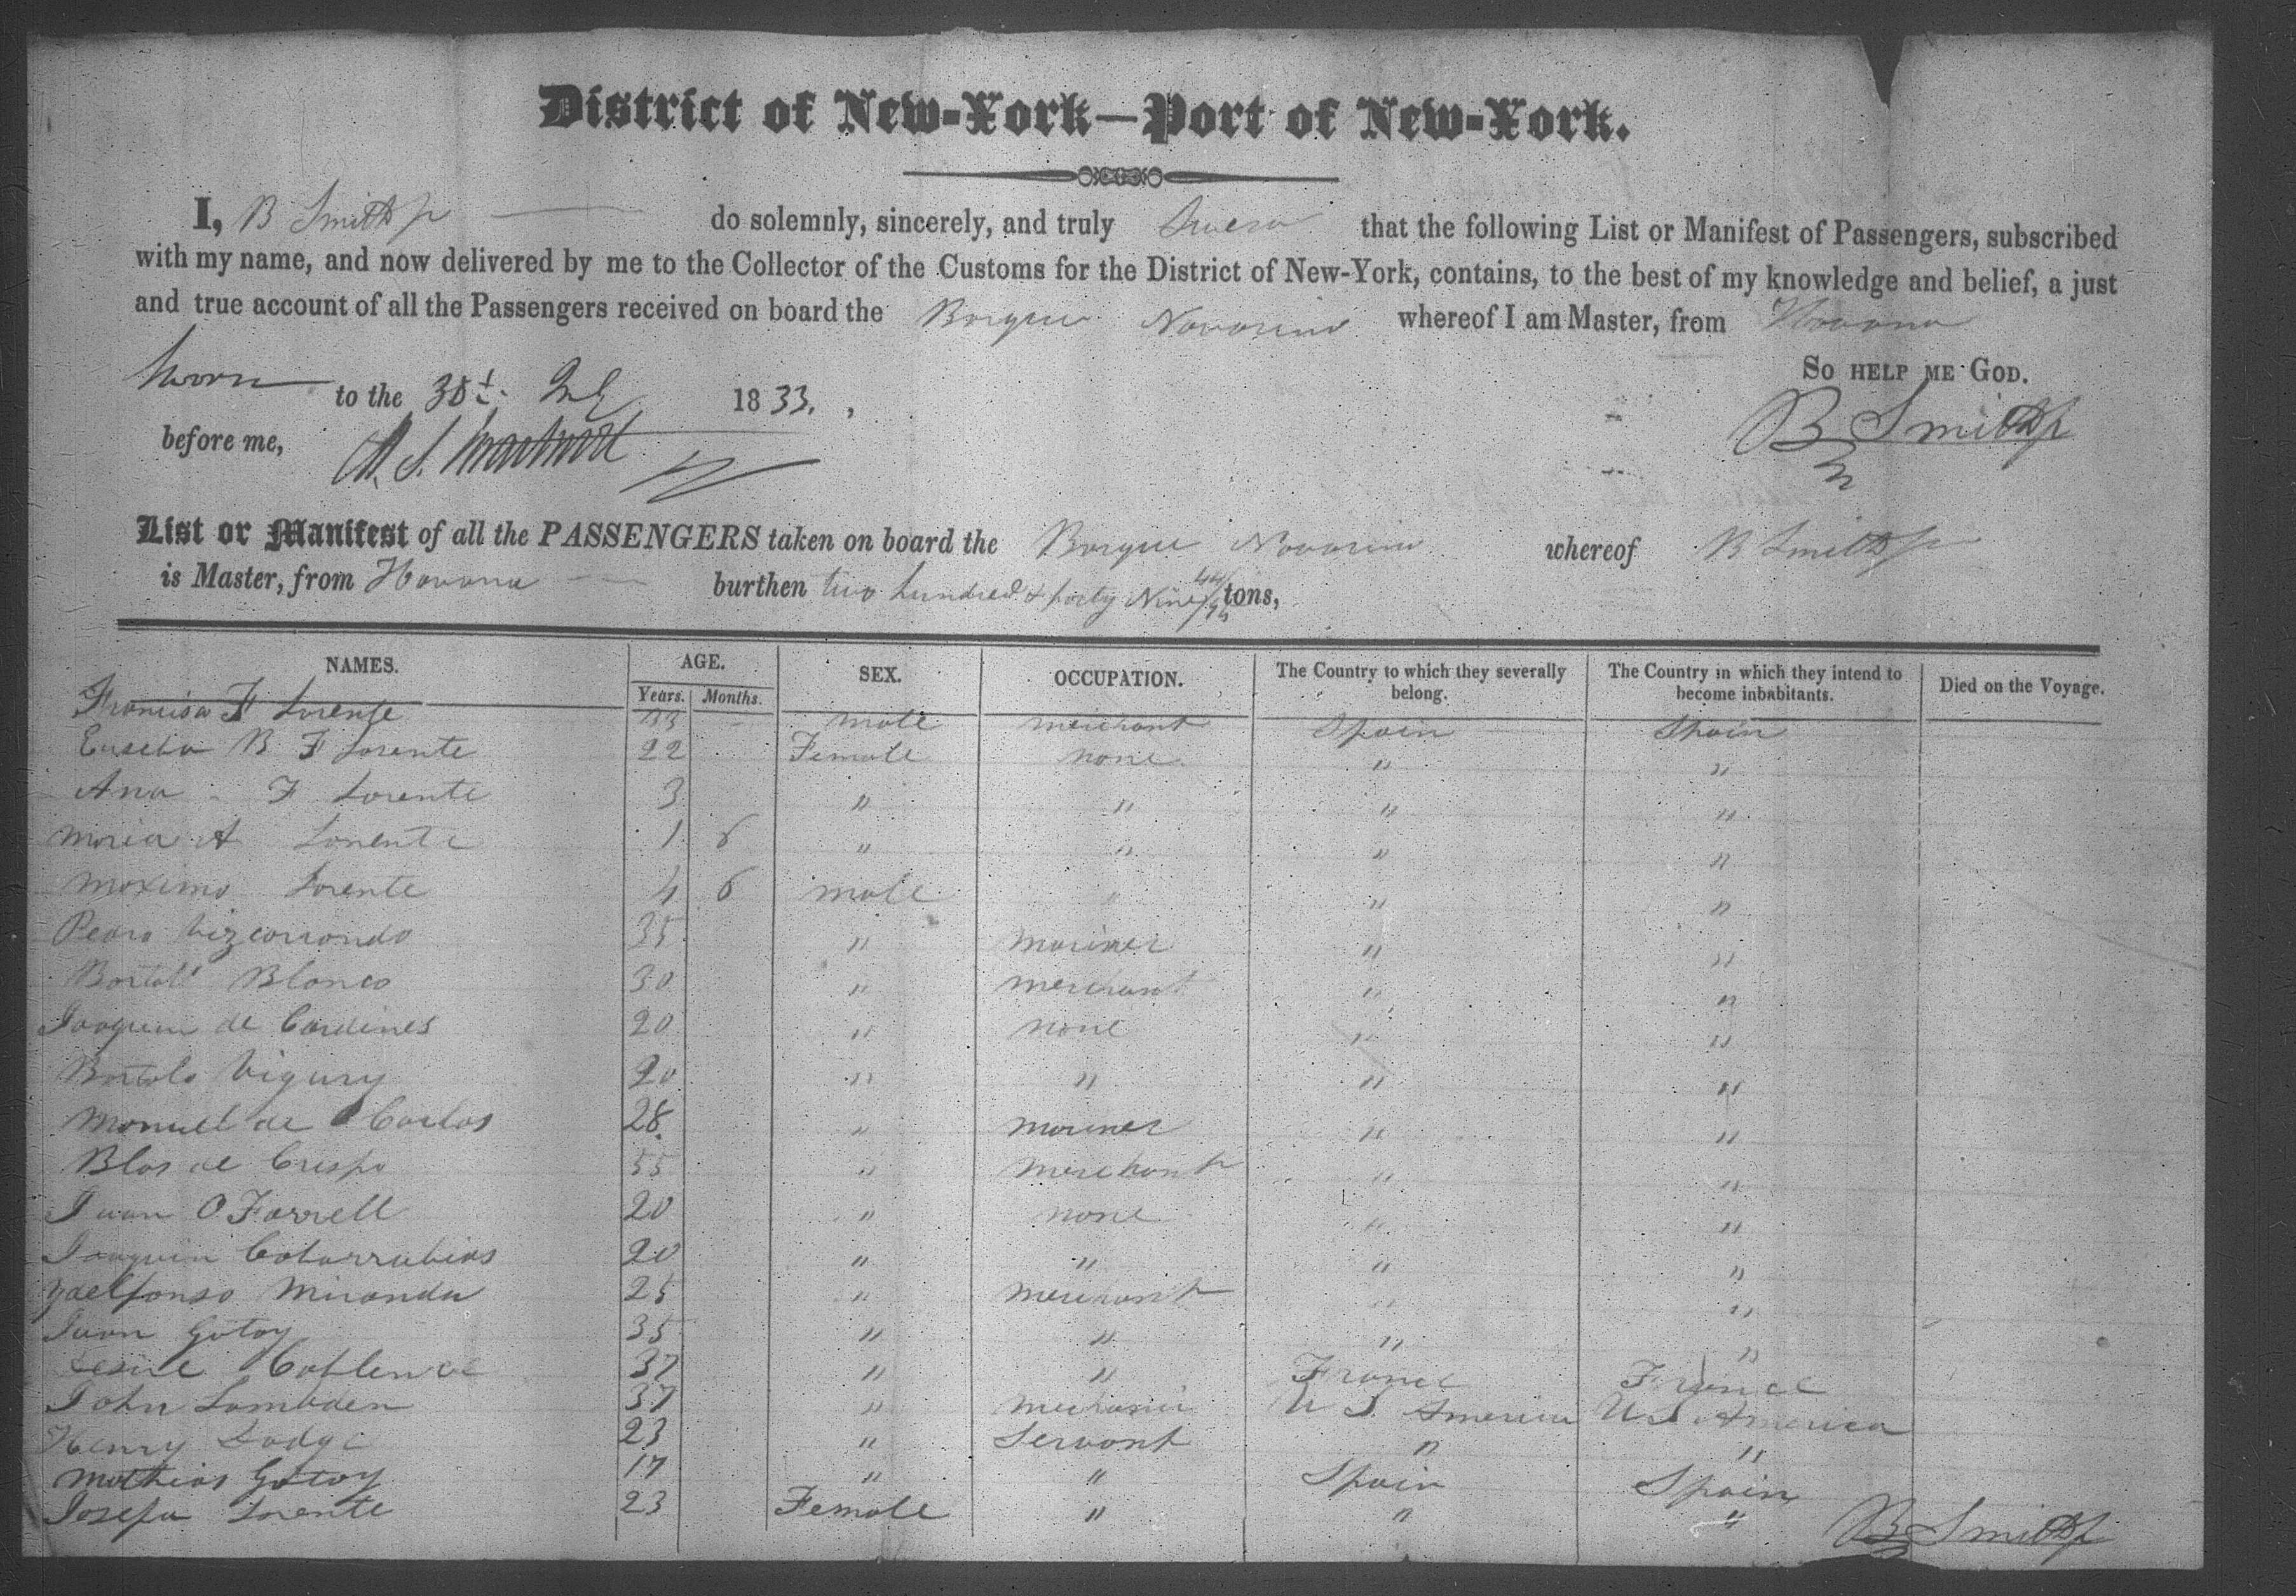 District of New-York—Port of New-York.
I, B Smith Jr do solemnly, sincerely, and truly Swear that the following List or Manifest of Passengers, subscribed
with my name, and now delivered by me to the Collector of the Customs for the District of New-York, contains, to the best of my knowledge and belief, a just
and true account of all the Passengers received on board the Barque Navarino whereof I am Master, from Havana
So help me God.
Sworn to the 1833.
B Smith Jr
before me,
List or Manifest of all the PASSENGERS taken on board the Barque Navarino whereof B Smith Jr
is Master, from Havana burthen two hundred & forty Nine 44/95 tons,
NAMES. AGE. SEX. OCCUPATION. The Country to which they severally belong. The Country in which they intend to become inhabitants. Died on the Voyage.
Years. Months.
F Lorente 33 - male merchant Spain Spain
Eusebia B F Lorente 22 Female none " "
Ana F Lorente 3 " " " "
Maria A Lorente 1 6 " " " "
Maximo Lorente 4 6 male " " "
Pedro Vizcarrondo 35 " mariner " "
Bartol Blanco 30 " merchant " "
Joaquin de Cardines 20 " none " "
Bartolo Vigury 20 " " " "
Manuel de Carlos 28 " mariner " "
Blas de Crespo 55 " merchant " "
Juan O Farrell 20 " none " "
Joaquin Cobarrubias 20 " " " "
Yldelfonso Miranda 25 " merchant " "
Juan Gatoy 35 " " " "
37 " " France France
John Lambden 37 " mechanic U S. America U S America
Henry Dodge 23 " Servant " "
Mathias Gatoy 17 " " Spain Spain
Josefa Lorente 23 Female " " "
B Smith Jr